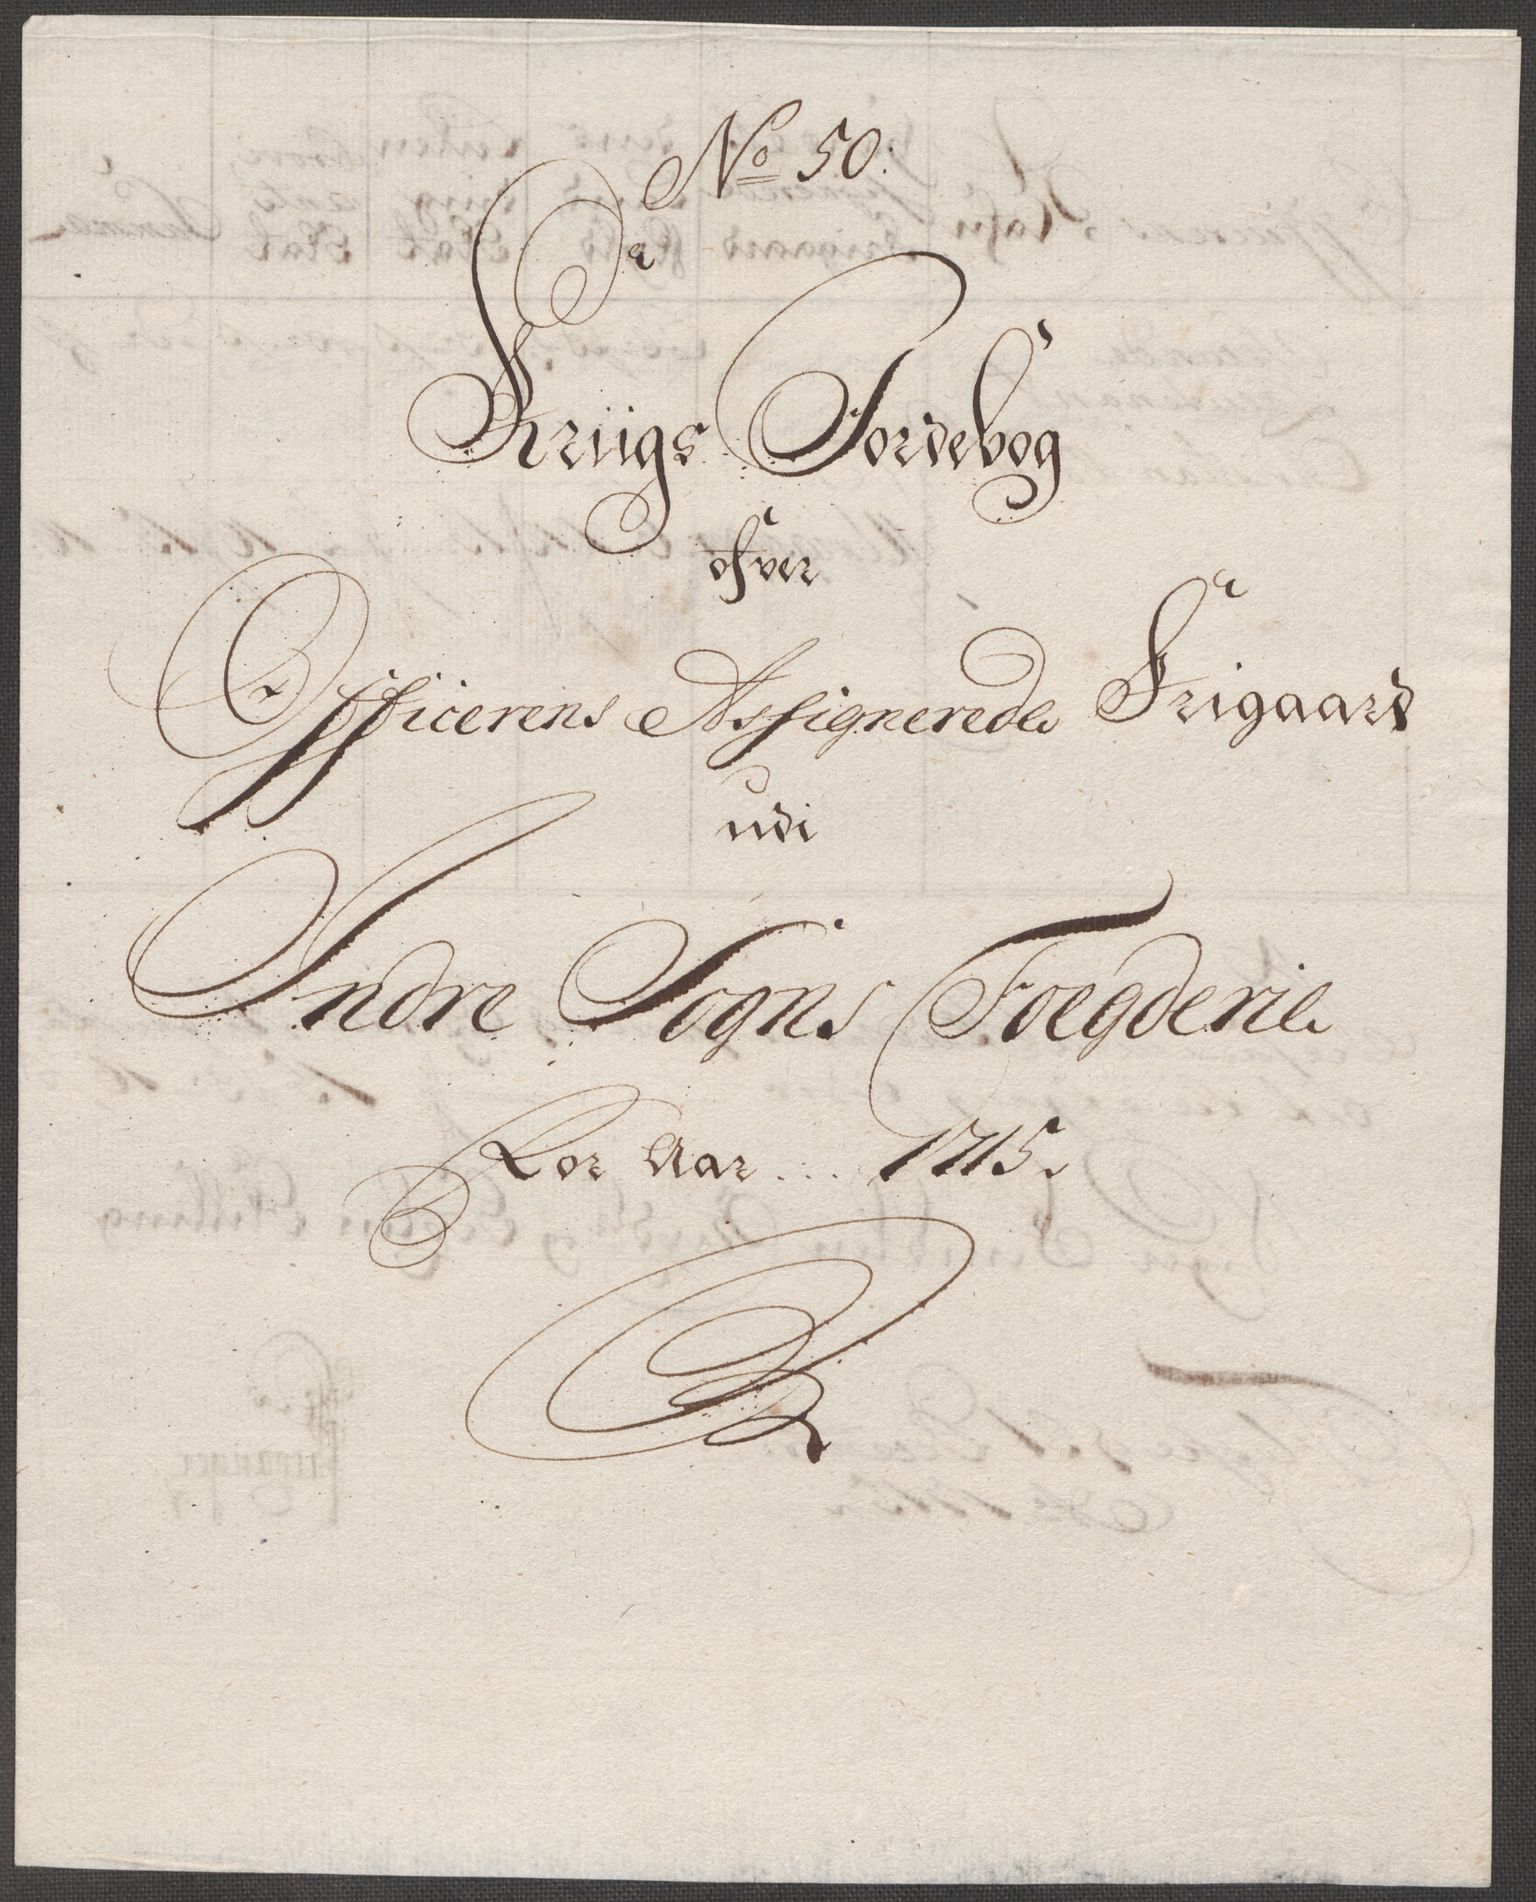 No 50:
Kriigs Jordebog
ofver
Officerens Assignerede Frigaard
udi
Indre Sogns Foegderie
For Aar ... 1715.